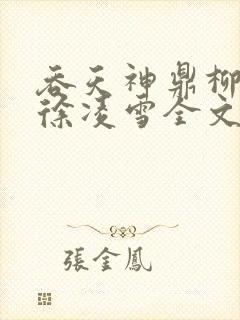 吞天神鼎柳
徐凌雪全文
張金鳳